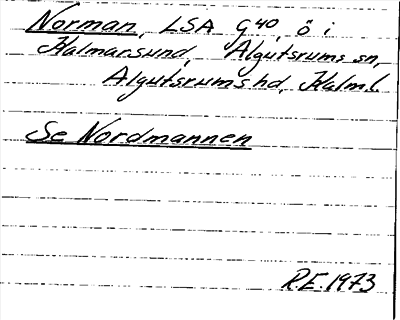 Norman, LSA G40, ö i
Kalmarsund, Algutsrums sn,
Algutsrums hd, Kalm l.
Se Nordmannen
R.E. 1973